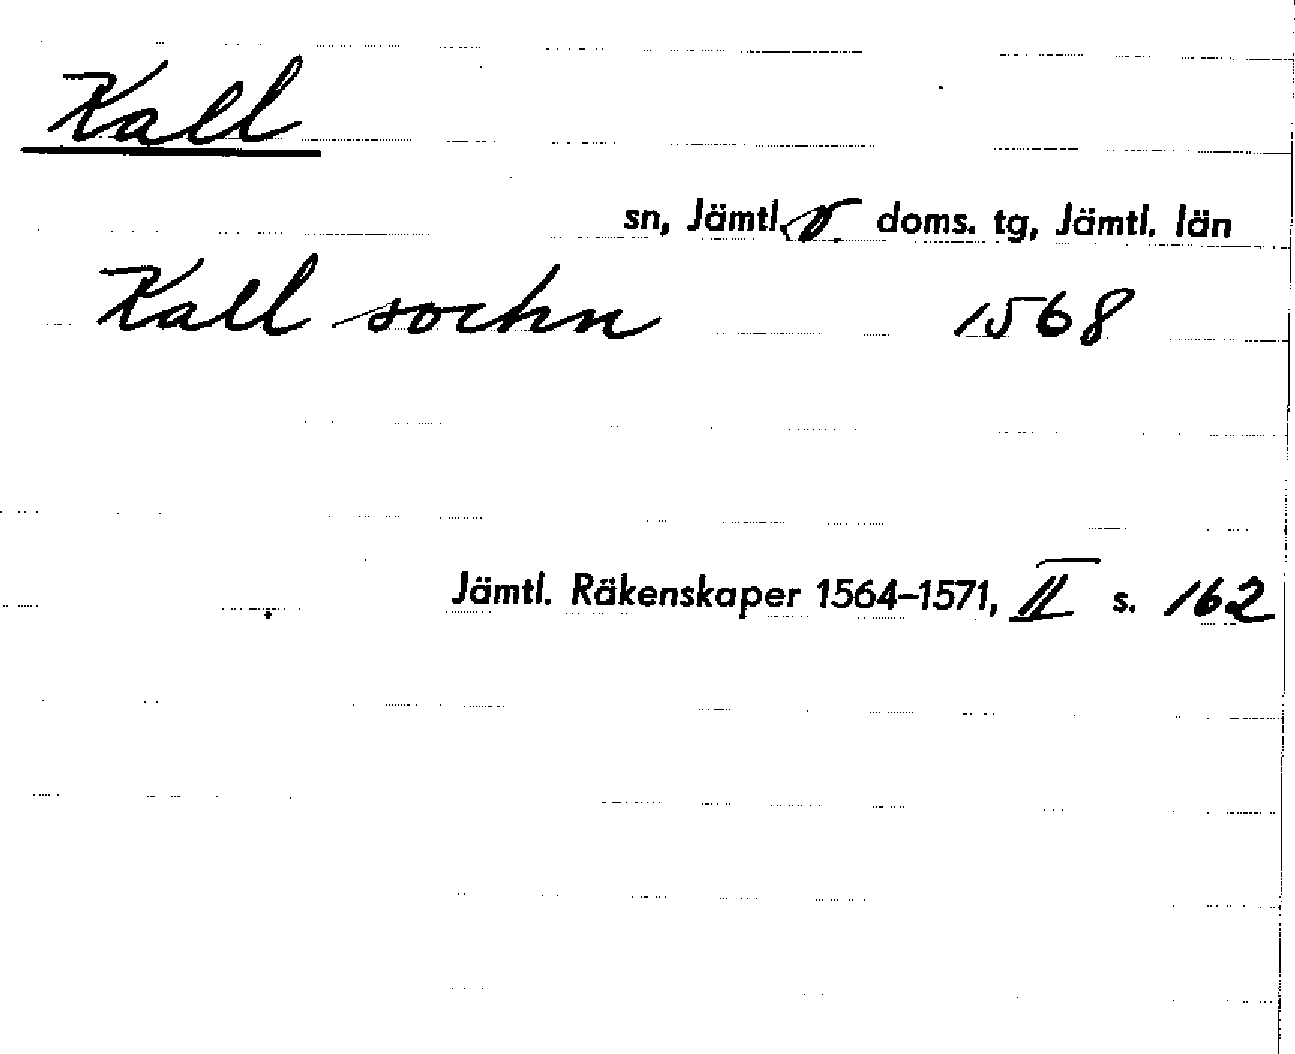 Kall
sn, Jämtl. v. doms. tg, Jämtl. län
Kall sochn 1568
Jämtl. Räkenskaper 1564–1571, II s. 162